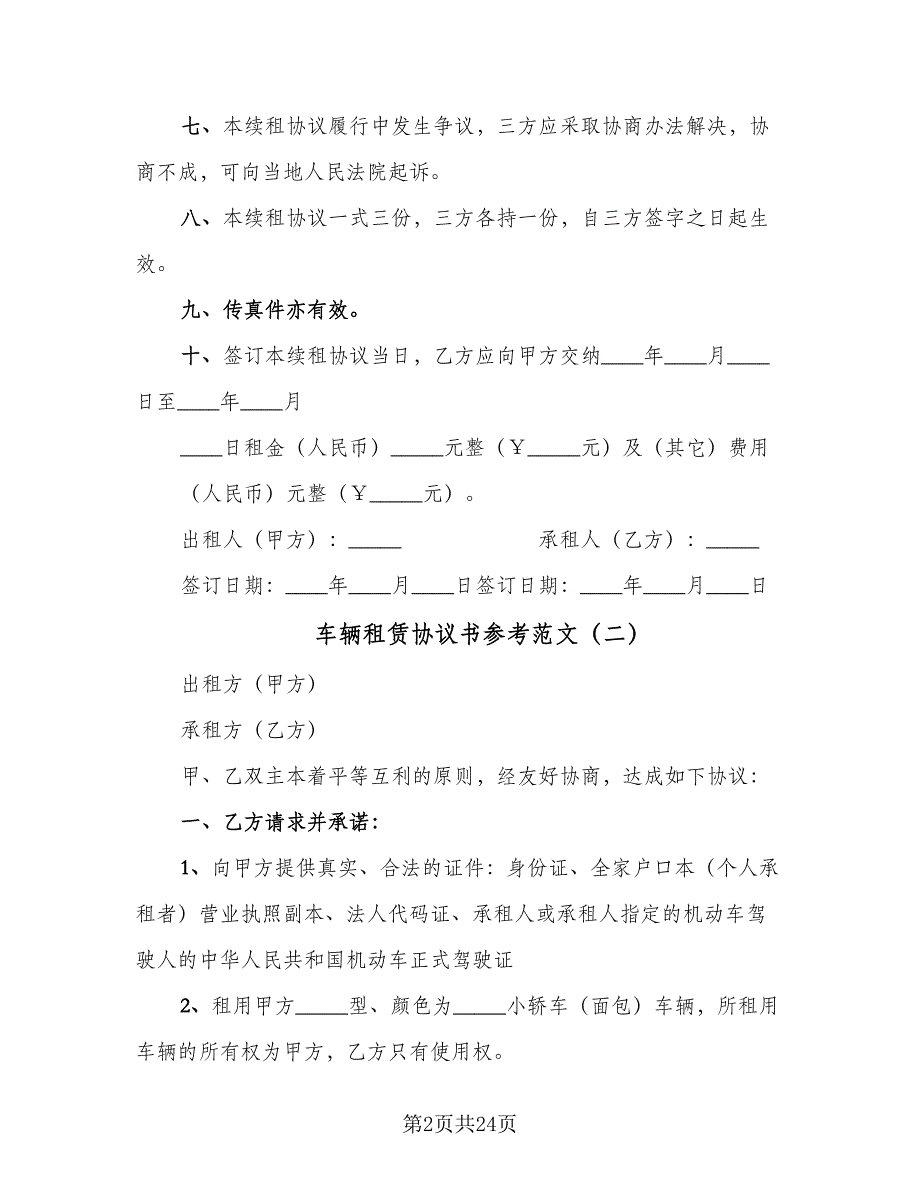 七、本续租协议履行中发生争议，三方应采取协商办法解决，协
商不成，可向当地人民法院起诉。
八、本续租协议一式三份，三方各持一份，自三方签字之日起生
效。
九、传真件亦有效。
十、签订本续租协议当日，乙方应向甲方交纳____年____月____
日至____年____月
____日租金（人民币）_____元整（￥_____元）及（其它）费用
（人民币）元整（￥_____元）。
出租人（甲方）：_____ 承租人（乙方）：_____
签订日期：____年____月____日签订日期：____年____月____日
车辆租赁协议书参考范文（二）
出租方（甲方）
承租方（乙方）
甲、乙双主本着平等互利的原则，经友好协商，达成如下协议：
一、乙方请求并承诺：
1、向甲方提供真实、合法的证件：身份证、全家户口本（个人承
租者）营业执照副本、法人代码证、承租人或承租人指定的机动车驾
驶人的中华人民共和国机动车正式驾驶证
2、租用甲方_____型、颜色为_____小轿车（面包）车辆，所租用
车辆的所有权为甲方，乙方只有使用权。
第2页共24页